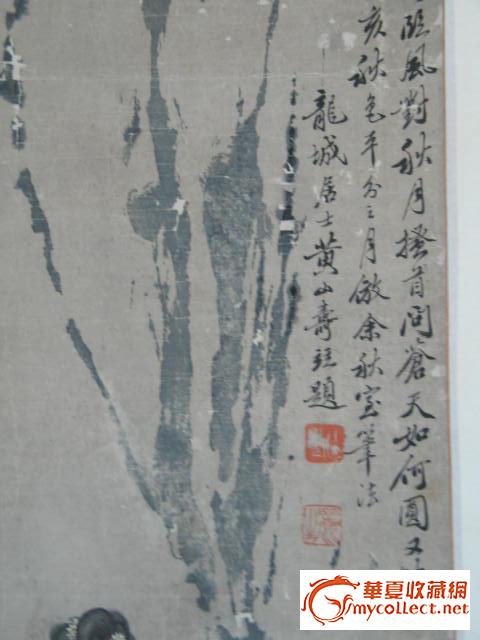 臨風對秋月搔首問蒼天如何圓又
亥秋色平分之月倣余秋室筆法
龍城居士黃山壽并題
華夏收藏網
mycollect.net